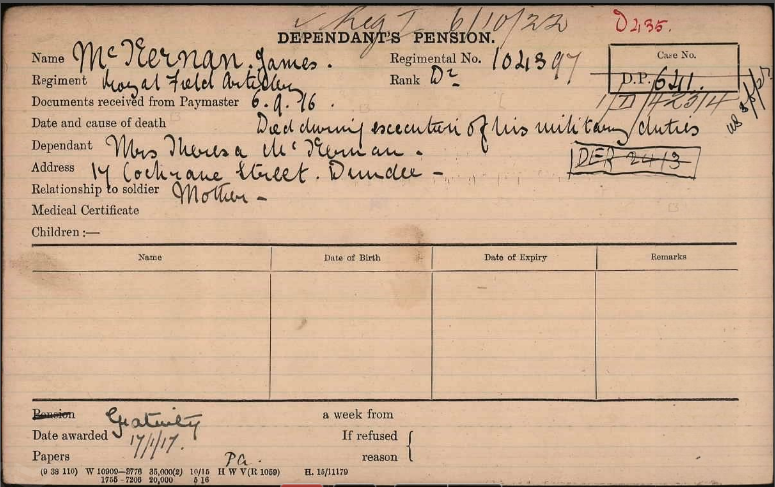 6/10/22 D435.
DEPENDANT'S PENSION.
Name McKernan. James.
Regimental No. 104397
Case No.
D.P. 641
Regiment Royal Field Artillery
Rank Dr
1/D/4234
Documents received from Paymaster 6.9.16.
Date and cause of death Died during execution of his military duties
Dependant Mrs Theresa McKernan.
Address 17 Cochrane Street. Dundee -
Relationship to soldier Mother -
Medical Certificate
Children :—
Name Date of Birth Date of Expiry Remarks
Pension Gratuity a week from
Date awarded 17/1/17. If refused
Papers P.a. reason
(9 38 110) W 10909—3776 35,000(2) 10/15 H W V(R 1059) H. 15/11179
1755 - 7206 20,000 5 16